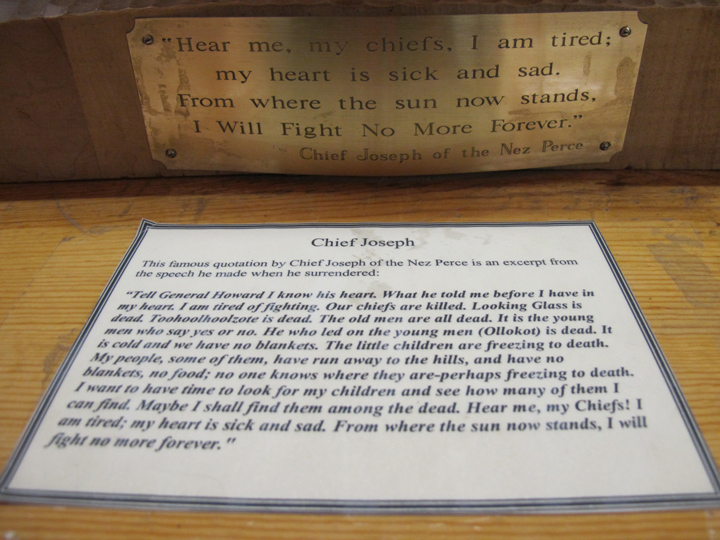 "Hear me, my chiefs, I am tired;
my heart is sick and sad.
From where the sun now stands,
I Will Fight No More Forever."
Chief Joseph of the Nez Perce
Chief Joseph
This famous quotation by Chief Joseph of the Nez Perce is an excerpt from
the speech he made when he surrendered:
"Tell General Howard I know his heart. What he told me before I have in
my heart. I am tired of fighting. Our chiefs are killed. Looking Glass is
dead. Toohoolhoolzote is dead. The old men are all dead. It is the young
men who say yes or no. He who led on the young men (Ollokot) is dead. It
is cold and we have no blankets. The little children are freezing to death.
My people, some of them, have run away to the hills, and have no
blankets, no food; no one knows where they are-perhaps freezing to death.
I want to have time to look for my children and see how many of them I
can find. Maybe I shall find them among the dead. Hear me, my Chiefs! I
am tired; my heart is sick and sad. From where the sun now stands, I will
fight no more forever."